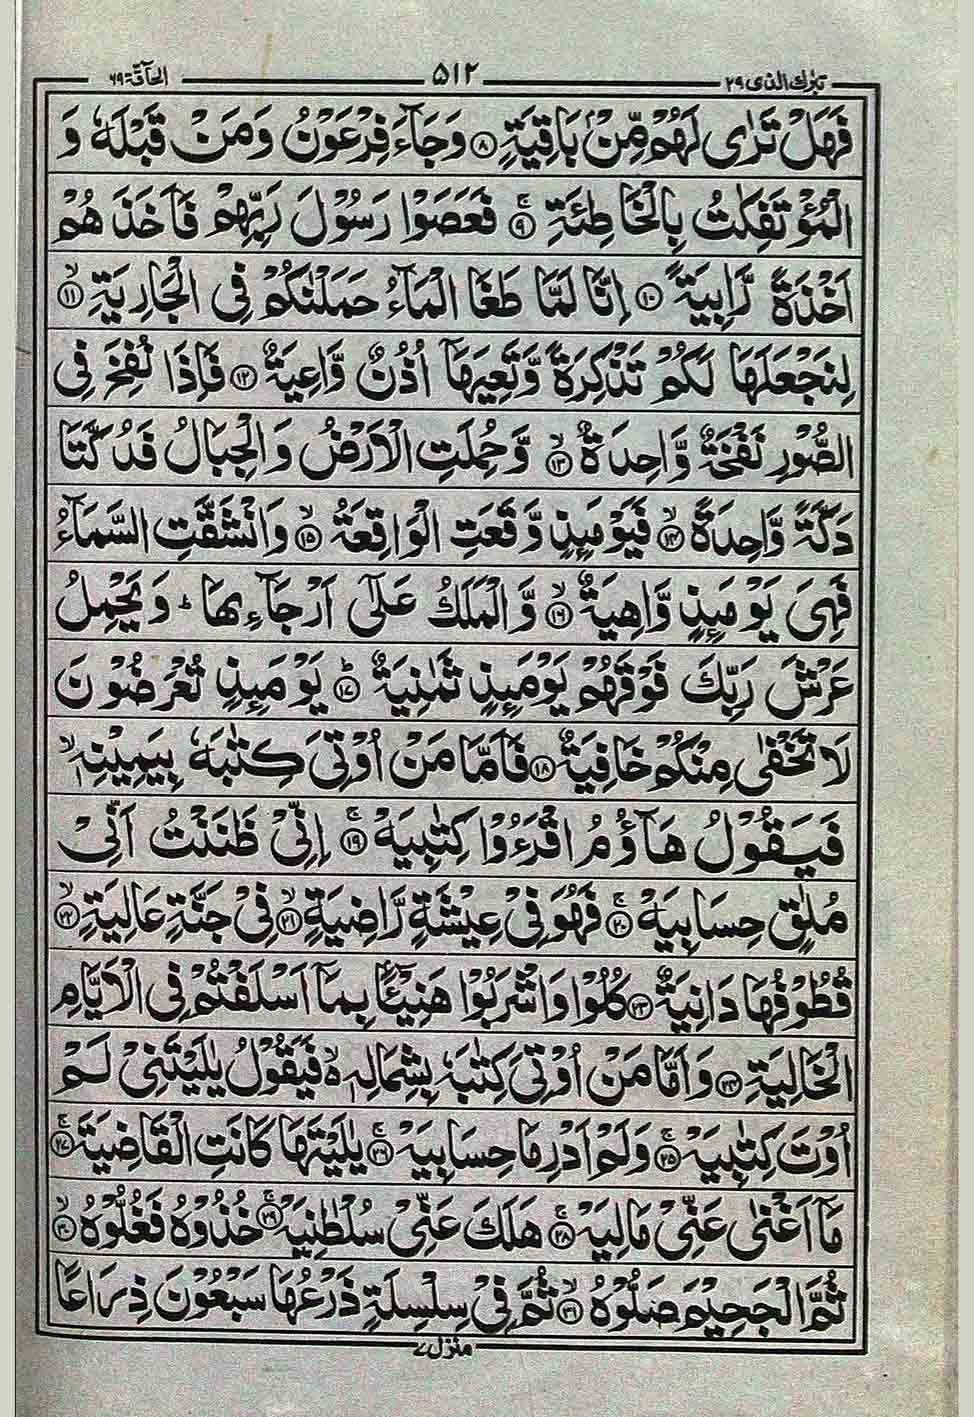 تبٰرك الذی ۲۹ ۵۱۲ الحآقة ۶۹
فَهَلْ تَرٰى لَهُمْ مِّنْۢ بَاقِيَةٍ ﴿۸﴾ وَجَآءَ فِرْعَوْنُ وَمَنْ قَبْلَهٗ وَ
الْمُؤْتَفِكٰتُ بِالْخَاطِئَةِ ۚ﴿۹﴾ فَعَصَوْا رَسُوْلَ رَبِّهِمْ فَاَخَذَهُمْ
اَخْذَةً رَّابِيَةً ﴿۱۰﴾ اِنَّا لَمَّا طَغَا الْمَآءُ حَمَلْنٰكُمْ فِى الْجَارِيَةِ ۙ﴿۱۱﴾
لِنَجْعَلَهَا لَكُمْ تَذْكِرَةً وَّتَعِيَهَاۤ اُذُنٌ وَّاعِيَةٌ ﴿۱۲﴾ فَاِذَا نُفِخَ فِى
الصُّوْرِ نَفْخَةٌ وَّاحِدَةٌ ۙ﴿۱۳﴾ وَّحُمِلَتِ الْاَرْضُ وَالْجِبَالُ فَدُكَّتَا
دَكَّةً وَّاحِدَةً ۙ﴿۱۴﴾ فَيَوْمَئِذٍ وَّقَعَتِ الْوَاقِعَةُ ۙ﴿۱۵﴾ وَانْشَقَّتِ السَّمَآءُ
فَهِىَ يَوْمَئِذٍ وَّاهِيَةٌ ۙ﴿۱۶﴾ وَّالْمَلَكُ عَلٰٓى اَرْجَآئِهَا ؕ وَيَحْمِلُ
عَرْشَ رَبِّكَ فَوْقَهُمْ يَوْمَئِذٍ ثَمٰنِيَةٌ ؕ﴿۱۷﴾ يَوْمَئِذٍ تُعْرَضُوْنَ
لَا تَخْفٰى مِنْكُمْ خَافِيَةٌ ﴿۱۸﴾ فَاَمَّا مَنْ اُوْتِىَ كِتٰبَهٗ بِيَمِيْنِهٖ ۙ
فَيَقُوْلُ هَآؤُمُ اقْرَءُوْا كِتٰبِيَهْ ۚ﴿۱۹﴾ اِنِّىْ ظَنَنْتُ اَنِّىْ
مُلٰقٍ حِسَابِيَهْ ۚ﴿۲۰﴾ فَهُوَ فِىْ عِيْشَةٍ رَّاضِيَةٍ ۙ﴿۲۱﴾ فِىْ جَنَّةٍ عَالِيَةٍ ۙ﴿۲۲﴾
قُطُوْفُهَا دَانِيَةٌ ﴿۲۳﴾ كُلُوْا وَاشْرَبُوْا هَنِيْٓئًۢا بِمَاۤ اَسْلَفْتُمْ فِى الْاَيَّامِ
الْخَالِيَةِ ﴿۲۴﴾ وَاَمَّا مَنْ اُوْتِىَ كِتٰبَهٗ بِشِمَالِهٖ ۙ فَيَقُوْلُ يٰلَيْتَنِىْ لَمْ
اُوْتَ كِتٰبِيَهْ ۚ﴿۲۵﴾ وَلَمْ اَدْرِ مَا حِسَابِيَهْ ۚ﴿۲۶﴾ يٰلَيْتَهَا كَانَتِ الْقَاضِيَةَ ۚ﴿۲۷﴾
مَاۤ اَغْنٰى عَنِّىْ مَالِيَهْ ۚ﴿۲۸﴾ هَلَكَ عَنِّىْ سُلْطٰنِيَهْ ۚ﴿۲۹﴾ خُذُوْهُ فَغُلُّوْهُ ۙ﴿۳۰﴾
ثُمَّ الْجَحِيْمَ صَلُّوْهُ ۙ﴿۳۱﴾ ثُمَّ فِىْ سِلْسِلَةٍ ذَرْعُهَا سَبْعُوْنَ ذِرَاعًا
منزل ۷